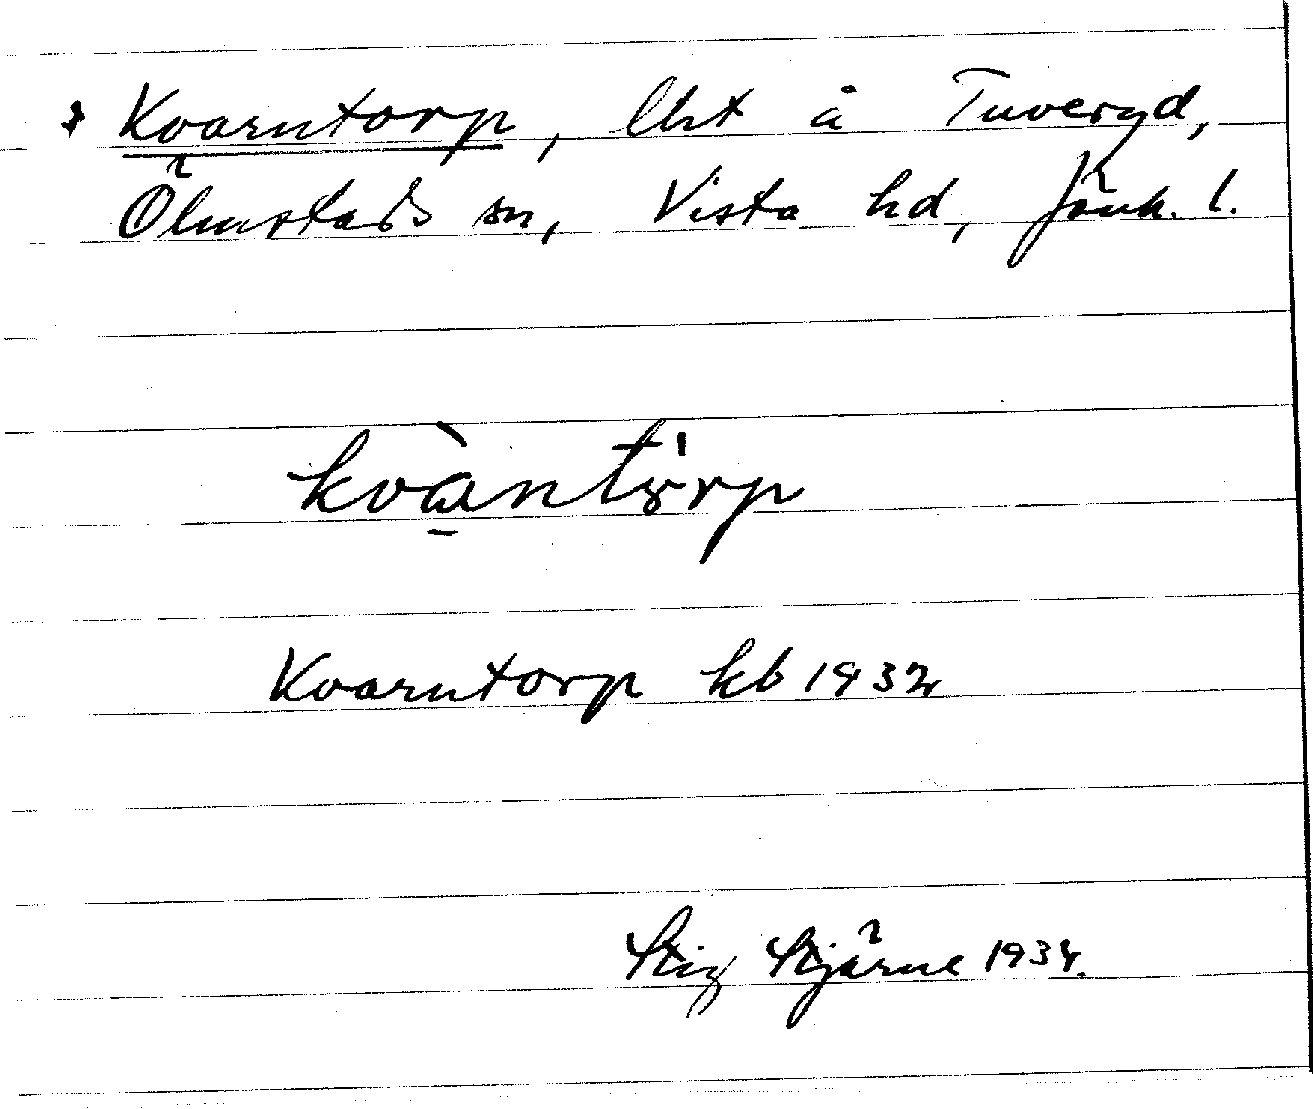 * Kvarntorp, lht å Tuveryd,
Ölmstads sn, Vista hd, Jönk. l.
kvàntörp
Kvarntorp kb 1932
Stig Stjärne 1934.